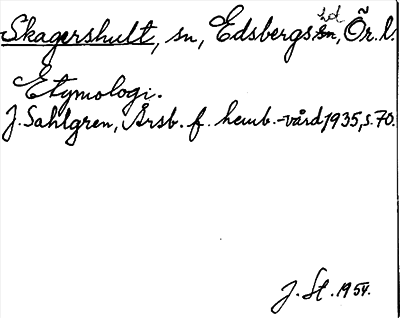 Skagershult, sn, Edsbergs hd, Ör. l.
Etymologi.
J. Sahlgren, Årsb. f. hemb.-vård 1935, s. 70.
J. St. 1954.